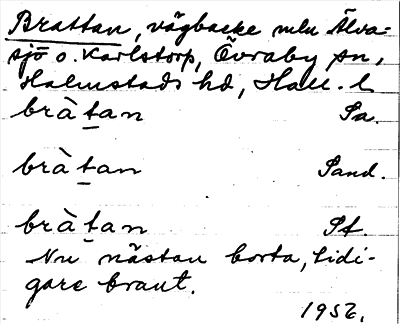 Brattan, vägbacke mln Älva=
sjö o. Karlstorp, Övraby sn,
Halmstads hd, Hall. l.
bràtan Sa.
bràtan Sand.
bràtan St.
Nu nästan borta, tidi-
gare brant.
1956.